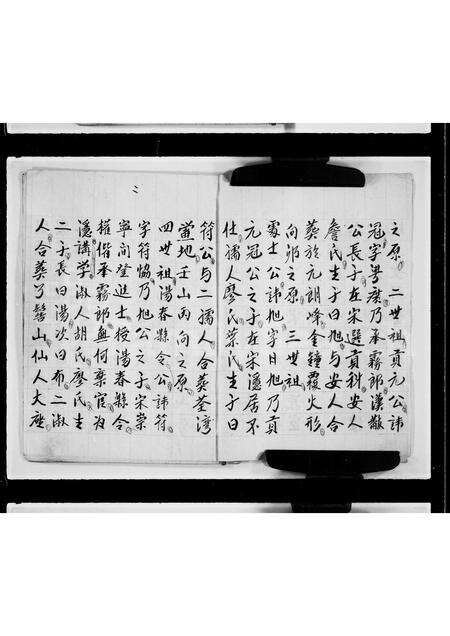 之原 二世祖貢元公諱
冠字粤癸乃承霧郎漢黻
公長子在宋選貢科安人
詹氏生子曰旭与安人合
葬於元朗峰金鐘覆火形
向卯之原 三世祖
處士公諱旭字日旭乃貢
元冠公之子在宋隱居不
仕孺人廖氏葉氏生子曰
符公与二孺人合葬荃湾
當地壬山丙向之原
四世祖湯春縣令公諱符
字符協乃旭公之子宋崇
寧间登進士授湯春縣令
權借承霧郎無何棄官为
隱講学淑人胡氏廖氏生
二子長曰湯次曰布二淑
人合葬丫髻山仙人大座
三